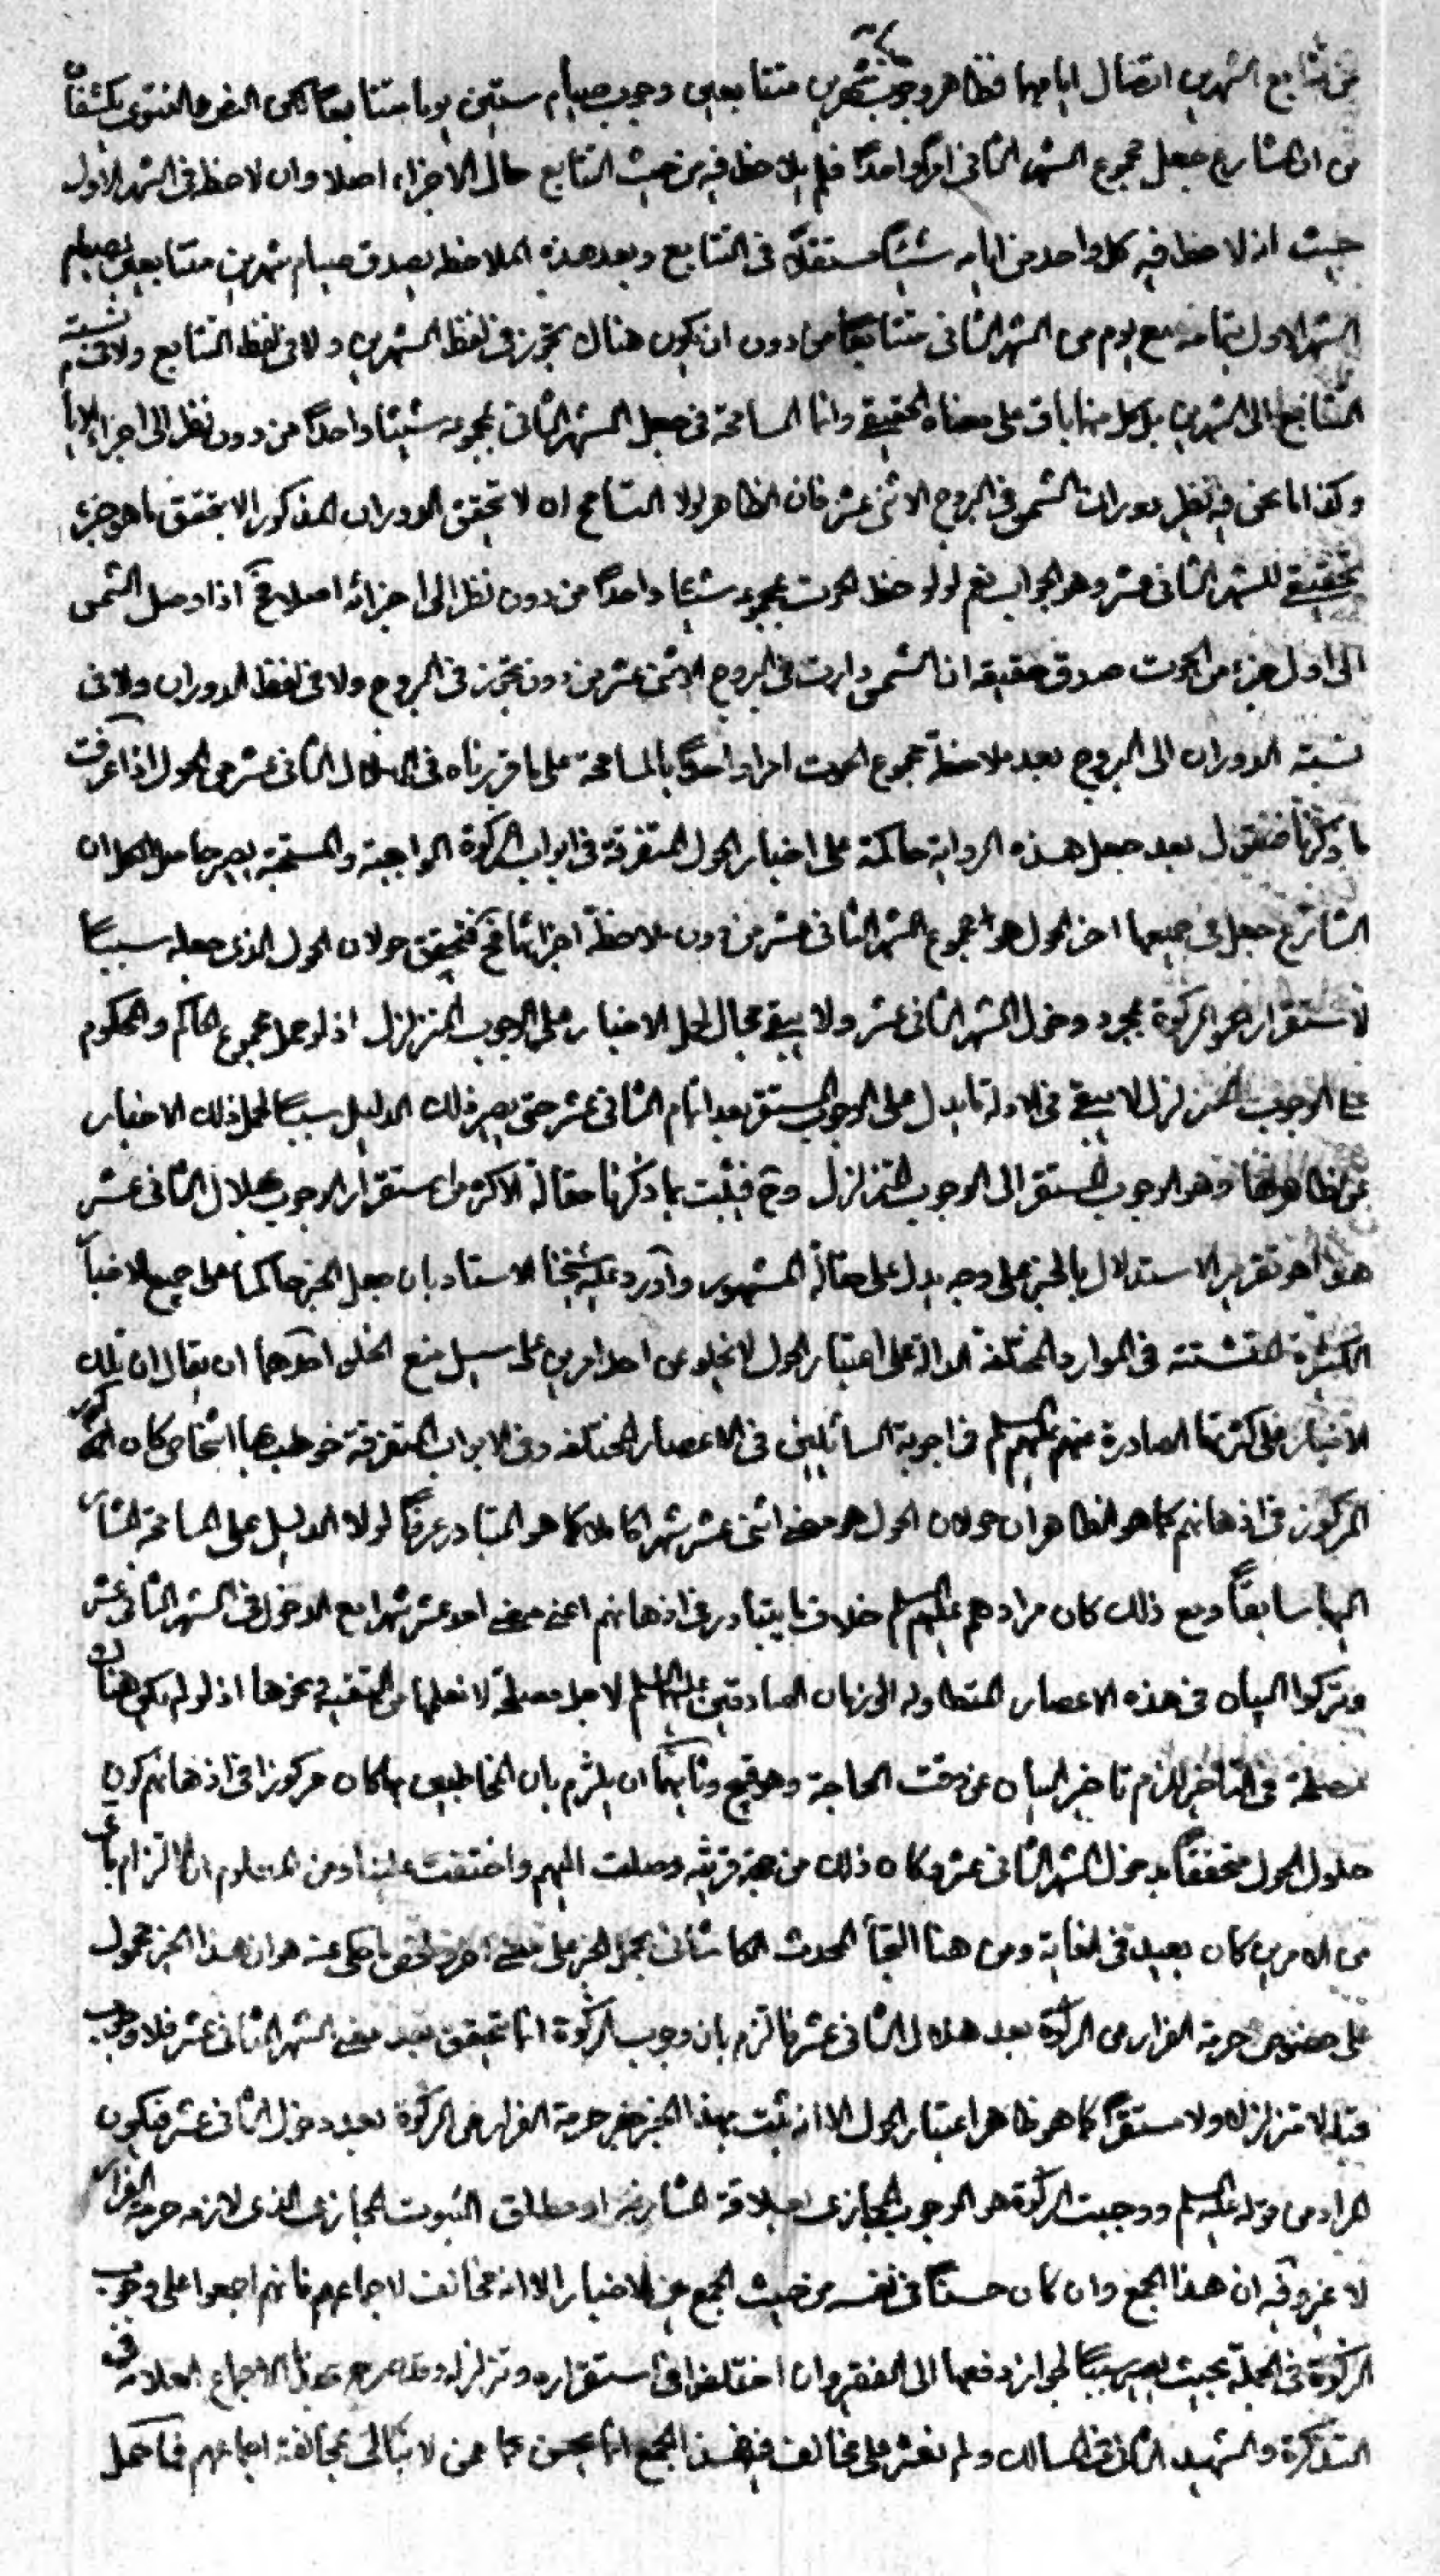 من تتابع الشهرين اتصال ايامهما فظاهر وجوب شهرين متتابعين وجوب صيام ستين يوما متتابعا لكن النص والفتوى يكشفان
من ان الشارع جعل مجموع الشهر الثانى امرا واحدا فلم يلاحظ فيه من حيث التتابع حال الاجزاء اصلا وان لاحظ فى الشهر الاول
حيث انه لاحظ فيه كل واحد من ايامه شيئا مستقلا فى التتابع وبعد هذه الملاحظة يصدق صيام شهرين متتابعين بصيام
الشهر الاول بتمامه مع يوم من الشهر الثانى متتابعا من دون ان يكون هناك تجوز فى لفظ الشهرين ولا فى لفظ التتابع ولا فى نسبة
التتابع الى الشهرين بل كل منها باق على معناه الحقيقى وانما المسامحة فى جعل الشهر الثانى بمجموعه شيئا واحدا من دون نظر الى اجزاء
وكذا ما نحن فيه نظير دوران الشمس فى البروج الاثنى عشر فان الظاهر لولا التسامح انه لا تحقق الدوران المذكور الا بتحقق ما هو جزء
تحقيقى للشهر الثانى عشر وهو الجواب نعم لو لوحظ الحوت بمجموعه شيئا واحدا من دون نظر الى اجزائه اصلا فح اذا وصل الشمس
الى اول جزء من الحوت صدق حقيقة ان الشمس دارت فى البروج الاثنى عشر من دون تجوز فى البروج ولا فى لفظ الدوران ولا فى
نسبة الدوران الى البروج بعد ملاحظة مجموع الحوت امرا واحدا بالمسامحة على ما قررناه فى الهلال الثانى عشر من الحول اذا عرفت
ما ذكرنا فنقول بعد جعل هذه الرواية حاكمة على اخبار الحول المتفرقة فى ابواب الزكوة الواجبة والمستحبة يصير حاصل الكل ان
الشارع جعل فى جميعها اخر الحول هو مجموع الشهر الثانى عشر من دون ملاحظة اجزائه فح فتحقق حولان الحول الذى جعله سببا
لاستقرار نحو الزكوة بمجرد دخول الشهر الثانى عشر ولا يبقى مجال لحمل الاخبار على الوجوب المتزلزل اذ لو حمل مجموع الحاكم والمحكوم
على الوجوب المتزلزل لا يبقى فى الادلة ما يدل على الوجوب المستقر بعد اتمام الثانى عشر حتى يصير ذلك الدليل سببا لحمل ذلك الاخبار
عن ظاهرها وهو الوجوب المستقر الى الوجوب المتزلزل وح فيثبت بما ذكرنا مقالة الاكثر من استقرار الوجوب بهلال الثانى عشر
هذا هو تقرير الاستدلال بالخبر على وجه يدل على مقالة المشهور واورد عليه شيخنا الاستاد بان جعل الخبر حاكما على جميع الاخبار
الكثيرة المتشتتة فى الموارد المختلفة الدالة على اعتبار الحول لا يخلو عن احد امرين على سبيل منع الخلو احدهما ان يقال ان تلك
الاخبار على كثرتها الصادرة منهم عليهم السلم فى اجوبة السائلين فى الاعصار المختلفة وفى الابواب المتفرقة خوطب بها اشخاص كان
المركوز فى اذهانهم كما هو الظاهر ان حولان الحول هو مضى اثنى عشر شهرا كاملا كما هو المتبادر عرفا لولا الدليل على المسامحة المشار
اليها سابقا ومع ذلك كان مرادهم عليهم السلم خلاف ما يتبادر فى اذهانهم اعنى مضى احد عشر شهرا مع الدخول فى الشهر الثانى عشر
وتركوا البيان فى هذه الاعصار المتطاولة الى زمان الصادقين عليهما السلم لاجل مصلحة لا نعلمها من التقية ونحوها اذ لو لم يكن هناك
مصلحة فى التاخير لزم تاخير البيان عن وقت الحاجة وهو قبيح وثانيهما ان يلتزم بان المخاطبين بها كان مركوزا فى اذهانهم كون
حلول الحول متحققا بدخول الشهر الثانى عشر وكان ذلك من جهة قرينة وصلت اليهم واختفت علينا ومن المعلوم ان الالتزام باى
من الامرين كان بعيد فى الغاية ومن هنا التجأ المحدث الكاشانى بحمل الخبر على معنى اخر ما حكى عنه هو ان هذا الخبر محمول
على خصوص حرمة الفرار من الزكوة بعد هلال الثانى عشر فالتزم بان وجوب الزكوة انما تحقق بعد مضى الشهر الثانى عشر فلا وجوب
قبله لا متزلزلا ولا مستقرا كما هو ظاهر اعتبار الحول الا انه ثبت بهذا الخبر حرمة الفرار من الزكوة بعد دخول الثانى عشر فيكون
المراد من قوله عليه السلم ووجبت الزكوة هو الوجوب المجازى بعلاقة المشارفة او مطلق الثبوت المجازى الذى لازمه حرمة الفرار
لا غير وفيه ان هذا الجمع وان كان حسنا فى نفسه من حيث الجمع بين الاخبار الا انه مخالف لاجماعهم فانهم اجمعوا على وجوب
الزكوة فى الجملة بحيث يصير سببا لجواز دفعها الى الفقير وان اختلفوا فى استقراره وتزلزله وقد صرح بهذا الاجماع العلامة فى
التذكرة والشهيد الثانى فى المسالك ولم نعثر على مخالف فيه فهذا الجمع انما يحسن عمن لا يبالى بمخالفة اجماعهم فما حمل